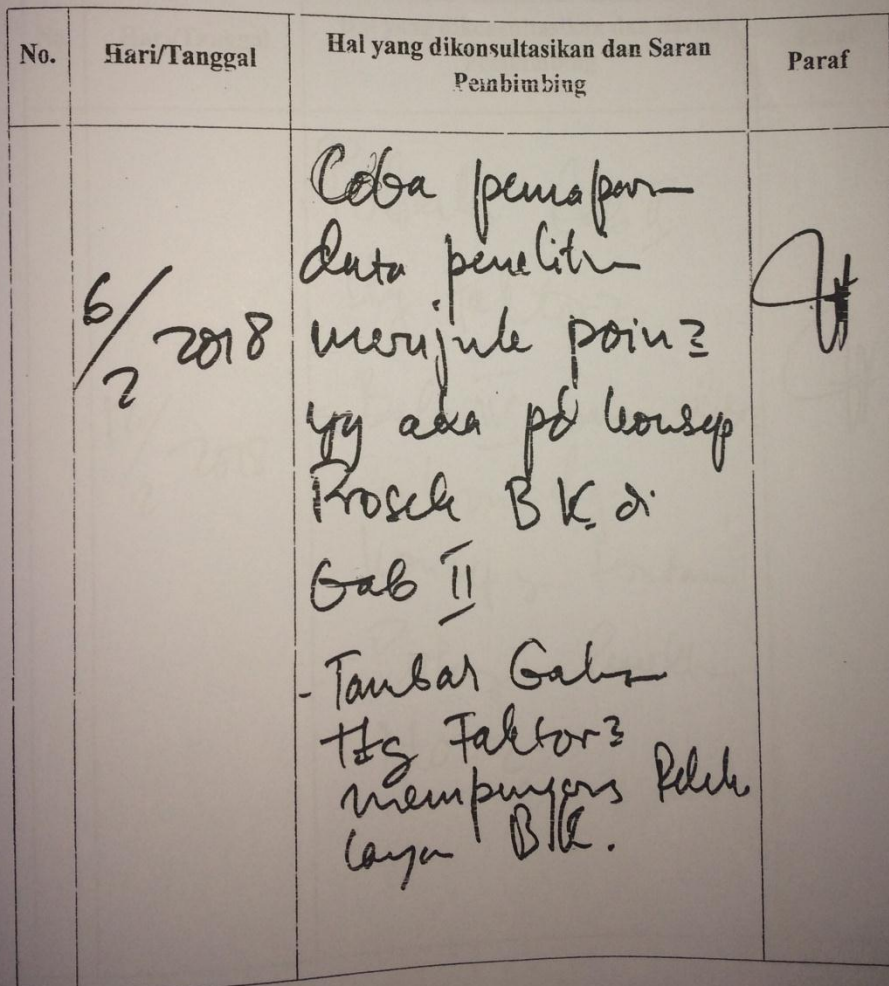 No.
Hari/Tanggal
Hal yang dikonsultasikan dan Saran
Pembimbing
Paraf
6/2 2018
Coba pemaparan
data penelitian
merujuk poin2
yg ada pd konsep
Prosek BK di
Bab II
- Tambah Bahan
ttg Faktor2
BK.